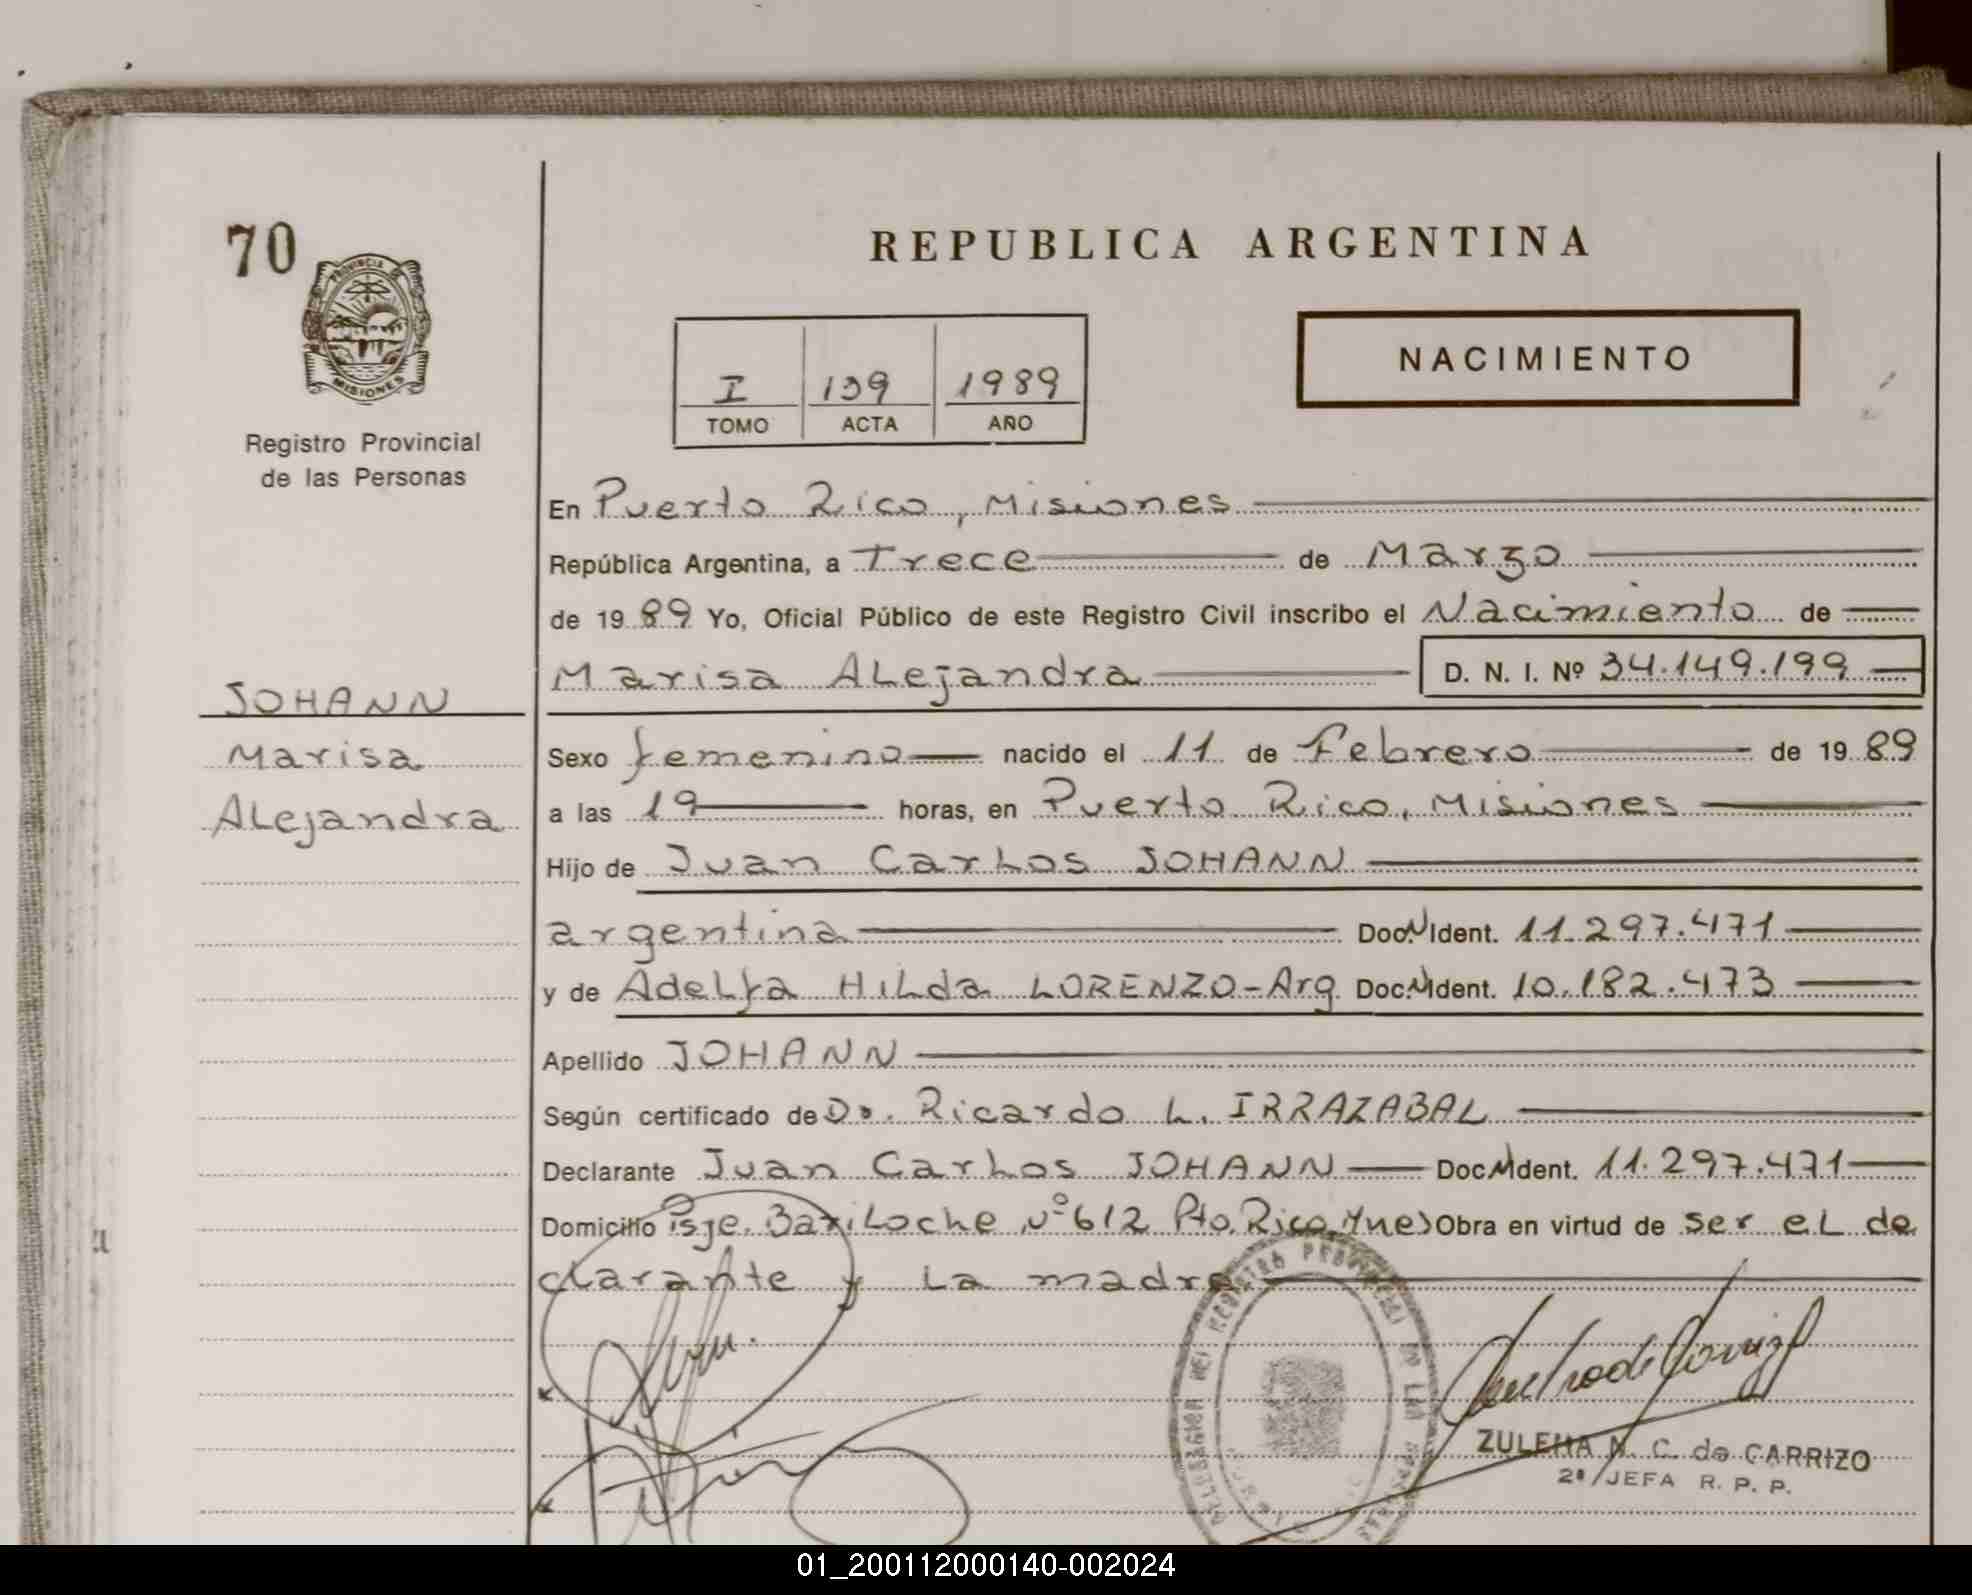 70
PROVINCIA DE
MISIONES
Registro Provincial
de las Personas
REPUBLICA ARGENTINA
I 139 1989
TOMO ACTA AÑO
NACIMIENTO
En Puerto Rico, Misiones
República Argentina, a Trece de Marzo
de 19 89 Yo, Oficial Público de este Registro Civil inscribo el Nacimiento de
Marisa Alejandra D. N. I. Nº 34.149.199
JOHANN
Marisa
Alejandra
Sexo femenino nacido el 11 de Febrero de 19 89
a las 19 horas, en Puerto Rico, Misiones
Hijo de Juan Carlos JOHANN
argentina Doc. N Ident. 11.297.471
y de Adelfa Hilda LORENZO-Arg Doc. N Ident. 10.182.473
Apellido JOHANN
Según certificado de Dr. Ricardo L. IRRAZABAL
Declarante Juan Carlos JOHANN Doc. N Ident. 11.297.471
Domicilio Psje. Bariloche Nº 612 Pto. Rico, Mnes Obra en virtud de ser el de
clarante y la madre
ZULEMA N. C. de CARRIZO
2ª JEFA R. P. P.
01_200112000140-002024